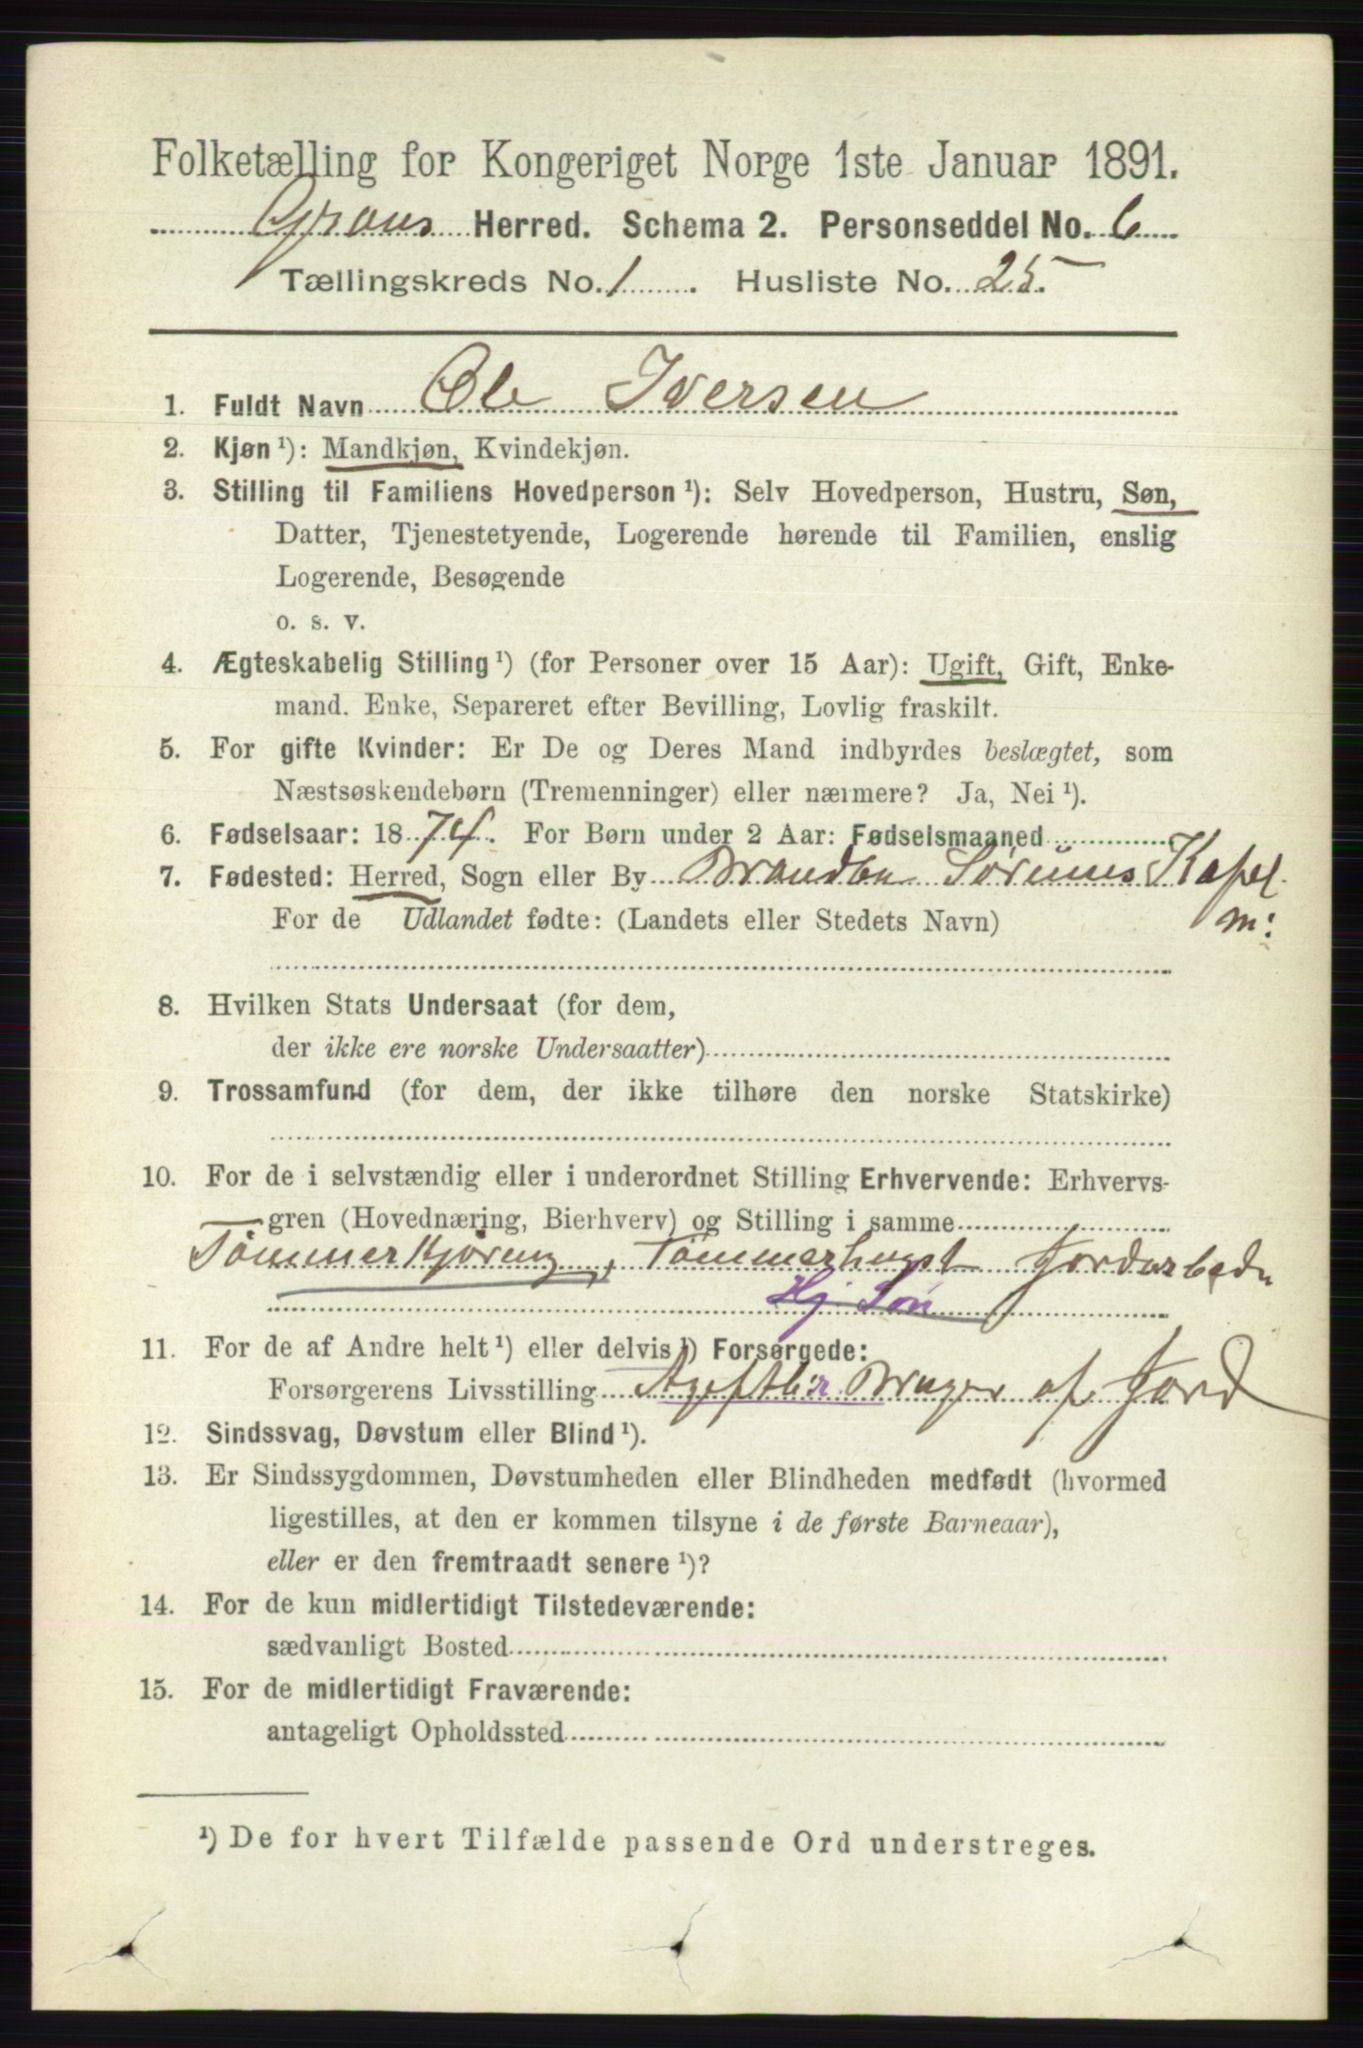 Folketælling for Kongeriget Norge 1ste Januar 1891.
Grans Herred. Schema 2. Personseddel No. 6
Tællingskreds No. 1. Husliste No. 25.
1. Fuldt Navn Ole Iversen
2. Kjøn ¹): Mandkjøn, Kvindekjøn.
3. Stilling til Familiens Hovedperson ¹): Selv Hovedperson, Hustru, Søn,
Datter, Tjenestetyende, Logerende hørende til Familien, enslig
Logerende, Besøgende
o. s. v.
4. Ægteskabelig Stilling ¹) (for Personer over 15 Aar): Ugift, Gift, Enke-
mand. Enke, Separeret efter Bevilling, Lovlig fraskilt.
5. For gifte Kvinder: Er De og Deres Mand indbyrdes beslægtet, som
Næstsøskendebørn (Tremenninger) eller nærmere? Ja, Nei ¹).
6. Fødselsaar: 1874. For Børn under 2 Aar: Fødselsmaaned
7. Fødested: Herred, Sogn eller By Brandbu Sørums Kapel
For de Udlandet fødte: (Landets eller Stedets Navn) m:
8. Hvilken Stats Undersaat (for dem,
der ikke ere norske Undersaatter)
9. Trossamfund (for dem, der ikke tilhøre den norske Statskirke)
10. For de i selvstændig eller i underordnet Stilling Erhvervende: Erhvervs-
gren (Hovednæring, Bierhverv) og Stilling i samme
Tømmerkjøring, Tømmerhugst Jordarbeide
Hj. Søn
11. For de af Andre helt ¹) eller delvis ¹) Forsørgede:
Forsørgerens Livsstilling Bruger af Jord
12. Sindssvag, Døvstum eller Blind ¹).
13. Er Sindssygdommen, Døvstumheden eller Blindheden medfødt (hvormed
ligestilles, at den er kommen tilsyne i de første Barneaar),
eller er den fremtraadt senere ¹)?
14. For de kun midlertidigt Tilstedeværende:
sædvanligt Bosted
15. For de midlertidigt Fraværende:
antageligt Opholdssted
¹) De for hvert Tilfælde passende Ord understreges.